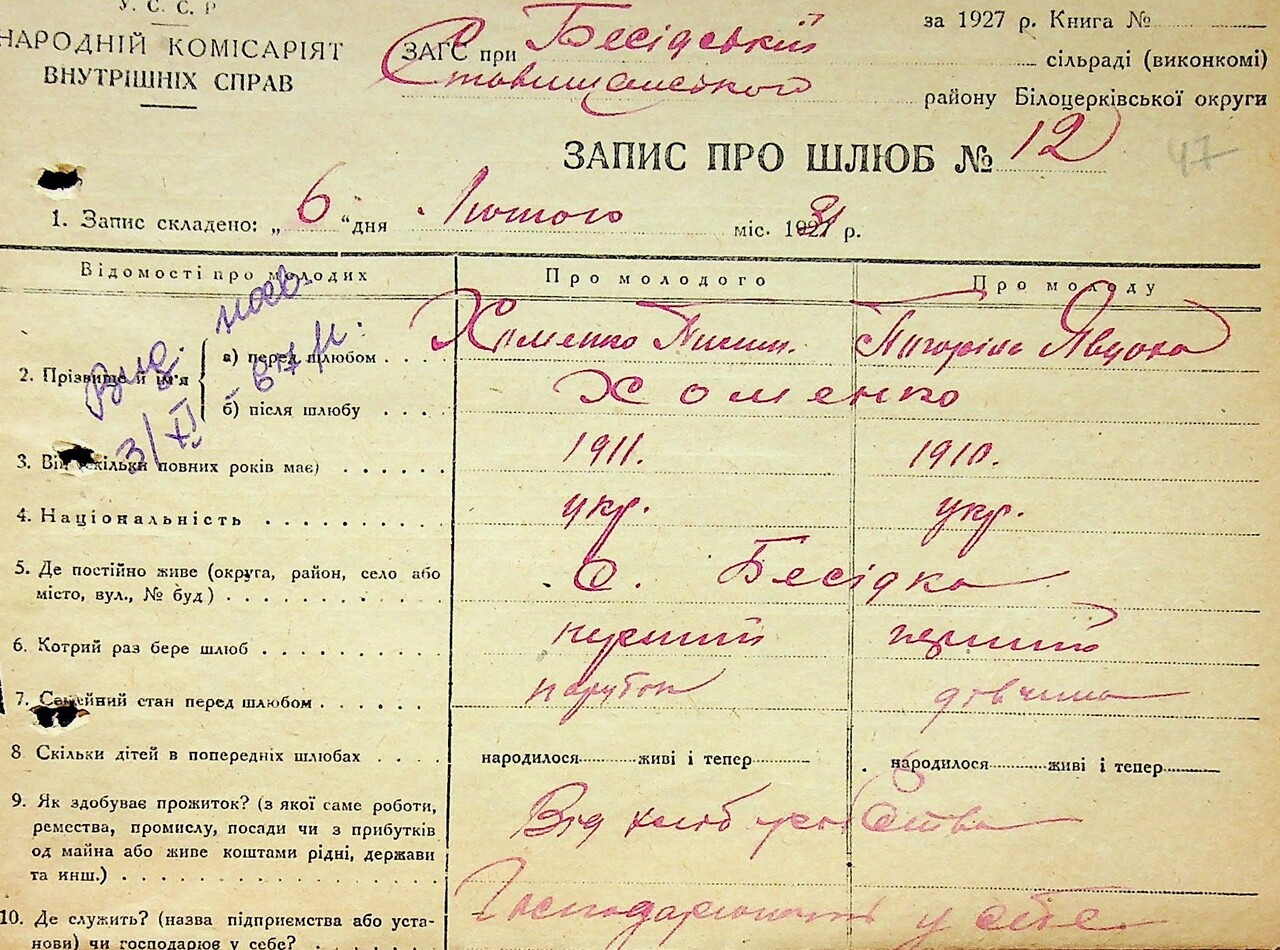 У. С. С. Р
НАРОДНІЙ КОМІСАРІЯТ
ВНУТРІШНІХ СПРАВ
за 1927 р. Книга №
ЗАГС при Бесідський сільраді (виконкомі)
Ставищанського району Білоцерківської округи
ЗАПИС ПРО ШЛЮБ № 12
47
1. Запис складено: „ 6 “ дня Лютого міс. 1931 р.
Відомості про молодих Про молодого Про молоду
2. Прізвище й ім'я
а) перед шлюбом Хоменко Явдоха
б) після шлюбу Хоменко
Вид. 3/XI
3. Вік скільки повних років має) 1911. 1910.
4. Національність укр. укр.
5. Де постійно живе (округа, район, село або
місто, вул., № буд) С. Бесідка
6. Котрий раз бере шлюб перший перший
7. Семейний стан перед шлюбом парубок дівчина
8 Скільки дітей в попередніх шлюбах народилося живі і тепер народилося живі і тепер
9. Як здобуває прожиток? (з якої саме роботи,
ремества, промислу, посади чи з прибутків
од майна або живе коштами рідні, держави
та инш.) Від хліборобства
10. Де служить? (назва підприємства або уста-
нови) чи господарює у себе? Господарюють у себе.